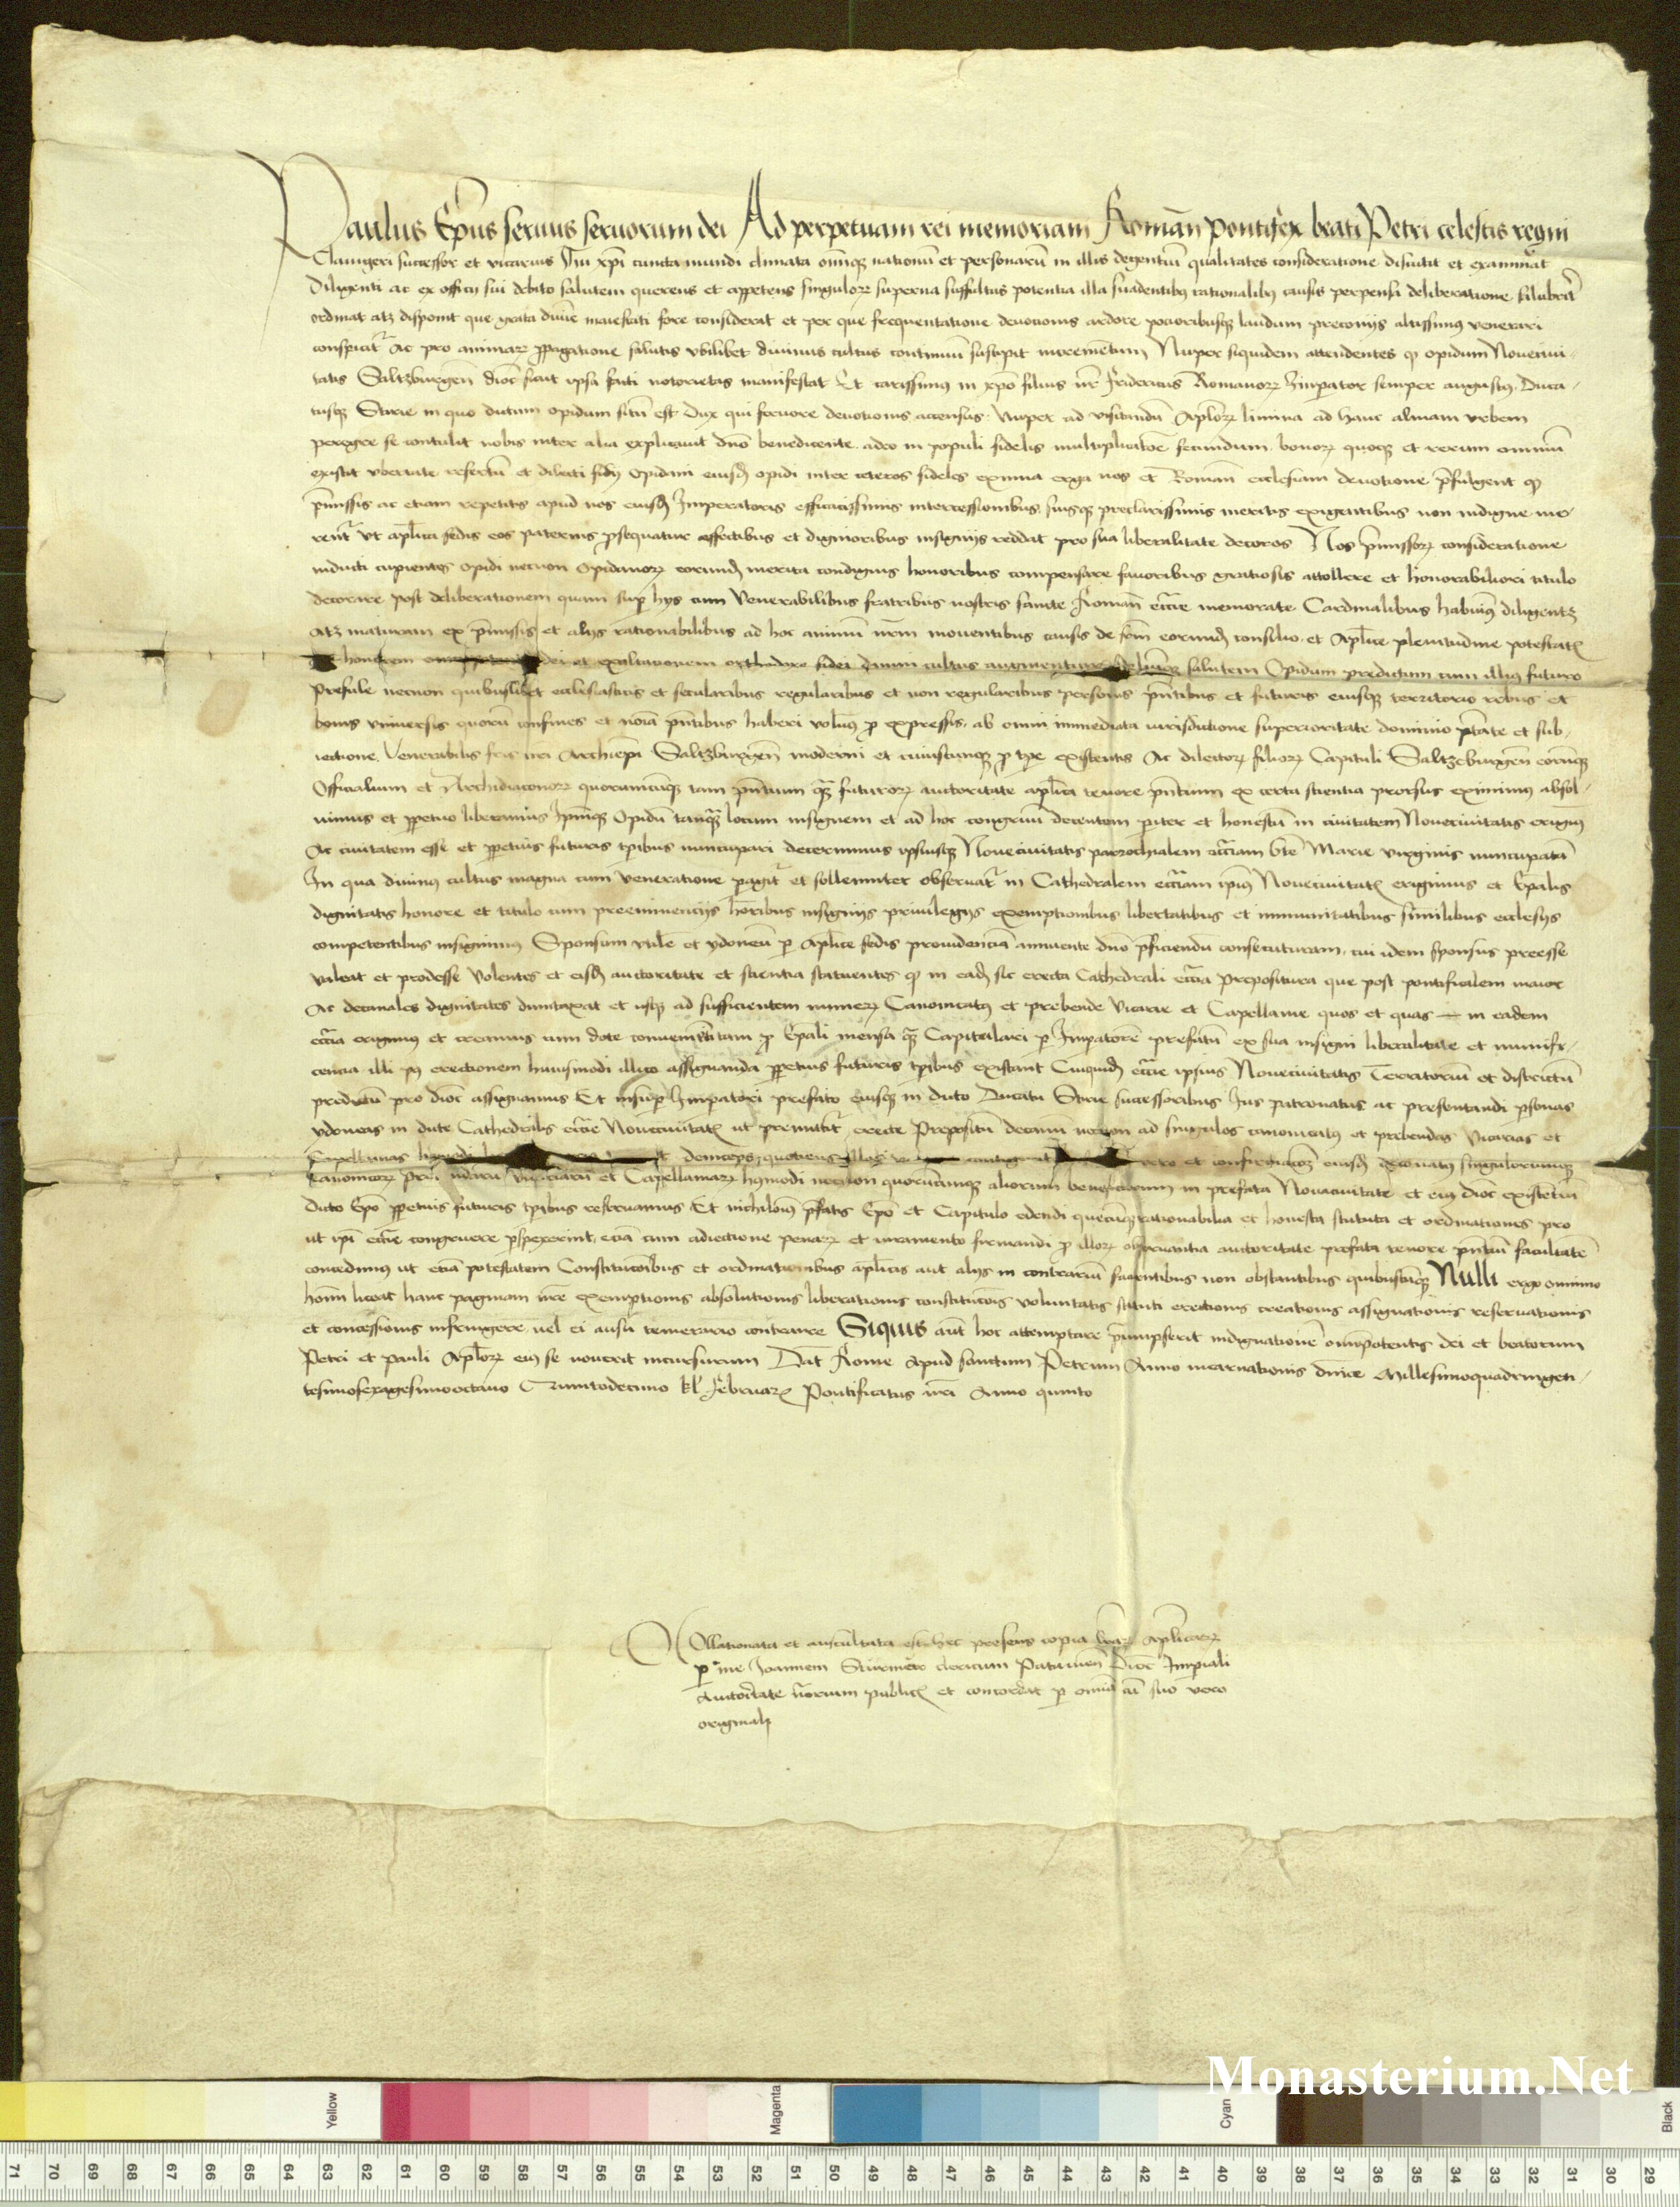 Paulus Ep̄us seruus seruorum dei Ad perpetuam rei memoriam Roman̄ pontifex beati Petri celestis regni
Clauigeri successor et vicarius Ihu xp̄i cuncta mundi climata om̄iuq nationū et personarū in illis degentiū qualitates consideratione discutit et examinat
diligenti ac ex officij sui debito salutem querens et appetens singuloꝝ superna suffultus potentia illa suadentibꝫ rationalibꝫ causis perpensa deliberatione salubrit̄
ordinat atqꝫ disponit que grata diuīe maiestati fore considerat et per que frequentatione deuotionis ardore potioribusqꝫ laudum preconijs altissimus venerari
conspicit᷑ Ac pro animaꝝ ꝓpagatione salutis vbilibet diuinus cultus continuū suscipit incremētum Nuper siquidem attendentes ꝙ opidum Noueciui-
tatis Saltzburgen̄ dioc̄ sicut ipsa facti notorietas manifestat Et carissimus in xp̄o filius nr̄ Fridericus Romanoꝝ Imperator semper augustus Duca-
tusqꝫ Stirie in quo dictum opidum sitū est dux qui feruore deuotionis accensus Nuper ad visitandū Ap̄loꝝ limina ad hanc almam vrbem
peregre se contulit nobis inter alia explicauit dn̄o benedicente adeo in populi fidelis multiplicatōe fecundum bonoꝝ quoqꝫ et rerum omniū
existit vbertate refertū et dilecti filij opidani eiusdꝫ opidi inter ceteros fideles eximia erga nos et Roman̄ ecclesiam deuotione p̄fulgent ꝙ
p̄missis ac etiam repetitis apud nos eiusdꝫ Imperatoris efficacissimis intercessionibus suisqꝫ preclarissimis meritis exigentibus non indigne me-
rent᷑ vt ap̄lica sedis eos paternis ꝓsequatur affectibus et dignioribus insignijs reddat pro sua liberalitate decoros Nos p̄missoꝝ consideratione
inducti cupientes opidi necnon opidanoꝝ eorundꝫ merita condignis honoribus compensare fauoribus gratiosis attollere et honorabiliori titulo
decorare post deliberationem quam suꝑ hijs cum Venerabilibus fratribus nostris sancte Roman̄ eccl̄ie memorate Cardinalibus habuimꝰ diligentē
atqꝫ maturam ex p̄missis et alijs rationabilibus ad hoc animū nr̄m mouentibus causis de fr̄m eorundꝫ consilio et Ap̄lice plenitudine potestatꝭ
honorem dei et exaltationem orthodoxe fidei diuini cultus augmentum salutem Opidum predictum cum illius futuro
Presule necnon quibuslibet ecclesiasticis et secularibus regularibus et non regularibus personis p̄ntibus et futuris eiusqꝫ territorio rebus et
bonis vniuersis quorū confines et noīa p̄ntibus haberi volumꝰ ꝓ expressis ab omni immediata iurisdictione superioritate dominio ptāte et sub-
iectione Venerabilis fr̄is nr̄i Archiep̄i Saltzburgen̄ moderni et cuiuscunqꝫ ꝓ tꝑe existentis Ac dilectoꝝ filioꝝ Capituli Saltzeburgen̄ eorūqꝫ
Officialium et Archidiaconoꝝ quorumcūqꝫ tam p̄ntium qꝫ futuroꝝ auctoritate ap̄lica tenore p̄ntium ex certa scientia prorsus eximimus absol-
uimus et ꝑpetuo liberamus Ip̄mqꝫ Opidū tanqꝫ locum insignem et ad hoc congruū decentem pariter et honestū in ciuitatem Noueciuitatis erigimꝰ
Ac ciuitatem esse et ꝑpetuis futuris tꝑibus nuncupari decernimus ipsiusqꝫ Noueciuitatis parrochialem eccl̄iam bt̄e Marie virginis nuncupatā
In qua diuinus cultus magna cum veneratione ꝑagit᷑ et sollemniter obseruat᷑ in Cathedralem eccl̄iam ipsiꝰ Noueciuitatꝭ erigimus et Ep̄alis
dignitatis honore et titulo cum preeminentijs hōribus insignijs priuilegijs exemptionibus libertatibus et immunitatibus similibus ecclesijs
competentibus insignimus Sponsum vtilē et ydoneū ꝑ Ap̄lice sedis prouidenciā annuente dn̄o p̄ficiendū consecuturam cui idem sponsus preesse
valeat et prodesse Volentes et eisdꝫ auctoritate et scientia statuentes ꝙ in eadꝫ sic erecta Cathedrali eccl̄ia Prepositura que post pontificalem maior
Ac decanales dignitates dumtaxat et vsqꝫ ad sufficientem numeꝝ Canonicatꝰ et prebende Vicarie et Capellanie quos et quas — in eadem
eccl̄ia erigimus et creamus cum dote conuenienti tam ꝓ Ep̄ali mensa qꝫ Capitulari ꝑ Imꝑatorē prefatū ex sua insigni liberalitate et munifi-
cencia illi pꝰ erectionem huiusmodi illico assignanda ꝑpetuis futuris tꝑibus existant Cuiquidꝫ eccl̄ie ipsius Noueciuitatis Territoriū et districtū
predictū pro dioc̄ assignamus Et insuꝑ Imꝑatori prefato eiusqꝫ in dicto Ducatu Stirie successoribus Ius patronatus ac presentandi ꝑsonas
ydoneas in dicte Cathedralis eccl̄ie Noueciuitatꝭ vt premittit᷑ erecte Prepositū decanū necnon ad singulos canonicatꝰ et prebendas Vicarias et
Capellanias deinceps quotiens et confirmacōꝫ eiusdꝫ decanatꝰ singulorumqꝫ
Canonicoꝝ Vicariarū et Capellaniaꝝ hmōi necnon quorūcunqꝫ aliorum beneficiorum in prefata Nouaciuitate et eiꝰ dioc̄ existētiū
dicto Ep̄o ꝑpetuis futuris tꝑibus reseruamus Et nichilomꝰ p̄fatis Ep̄o et Capitulo edendi quecūqꝫ rationabilia et honesta statuta et ordinationes pro
ut ip̄i eccl̄ie congruere ꝓspexerint eciā cum adiectione penaꝝ et iuramento firmandi ꝓ illoꝝ obseruantia auctoritate prefata tenore p̄ntiū facultatē
concedimus ut eciā potestatem Constitucōibus et ordinationibus ap̄licis aut alijs in contrariū facientibus non obstantibus quibuscūqꝫ Nulli ergo omnino
homī liceat hanc paginam nr̄e exemptionis absolutionis liberationis constitucōis voluntatis statuti erectionis creationis assignationis reseruationis
et concessionis infringere uel ei ausu temerario contraire Siquis aūt hoc attemptare p̄sumpserit indignationē om̄ipotentis dei et beatorum
Petri et Pauli Ap̄loꝝ eiꝰ se nouerit incursurum Dat̄ Rome Apud sanctum Petrum Anno incarnationis dn̄ice Millesimoquadringen-
tesimosexagesimooctauo Quintodecimo kl̄ Februarꝭ Pontificatus nr̄i Anno quinto
Collationata et auscultata est hec presens copia lr̄aꝝ Ap̄licaꝝ
ꝑ me Joannem clericum Patauien̄ Dioc̄ Imꝑiali
Auctoritate publicꝭ et concordat ꝑ omnia cū suo vero
originali
Monasterium.Net
Yellow
Magenta
Cyan
Black
71 70 69 68 67 66 65 64 63 62 61 60 59 58 57 56 55 54 53 52 51 50 49 48 47 46 45 44 43 42 41 40 39 38 37 36 35 34 33 32 31 30 29